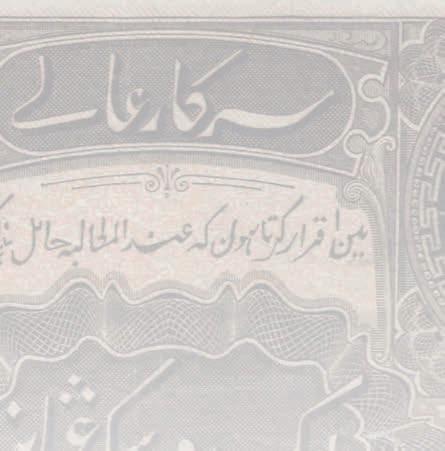 سرکار عالی
میں اقرار کرتا ہوں کہ عند المطالبہ حامل
سکہ عثمانیہ